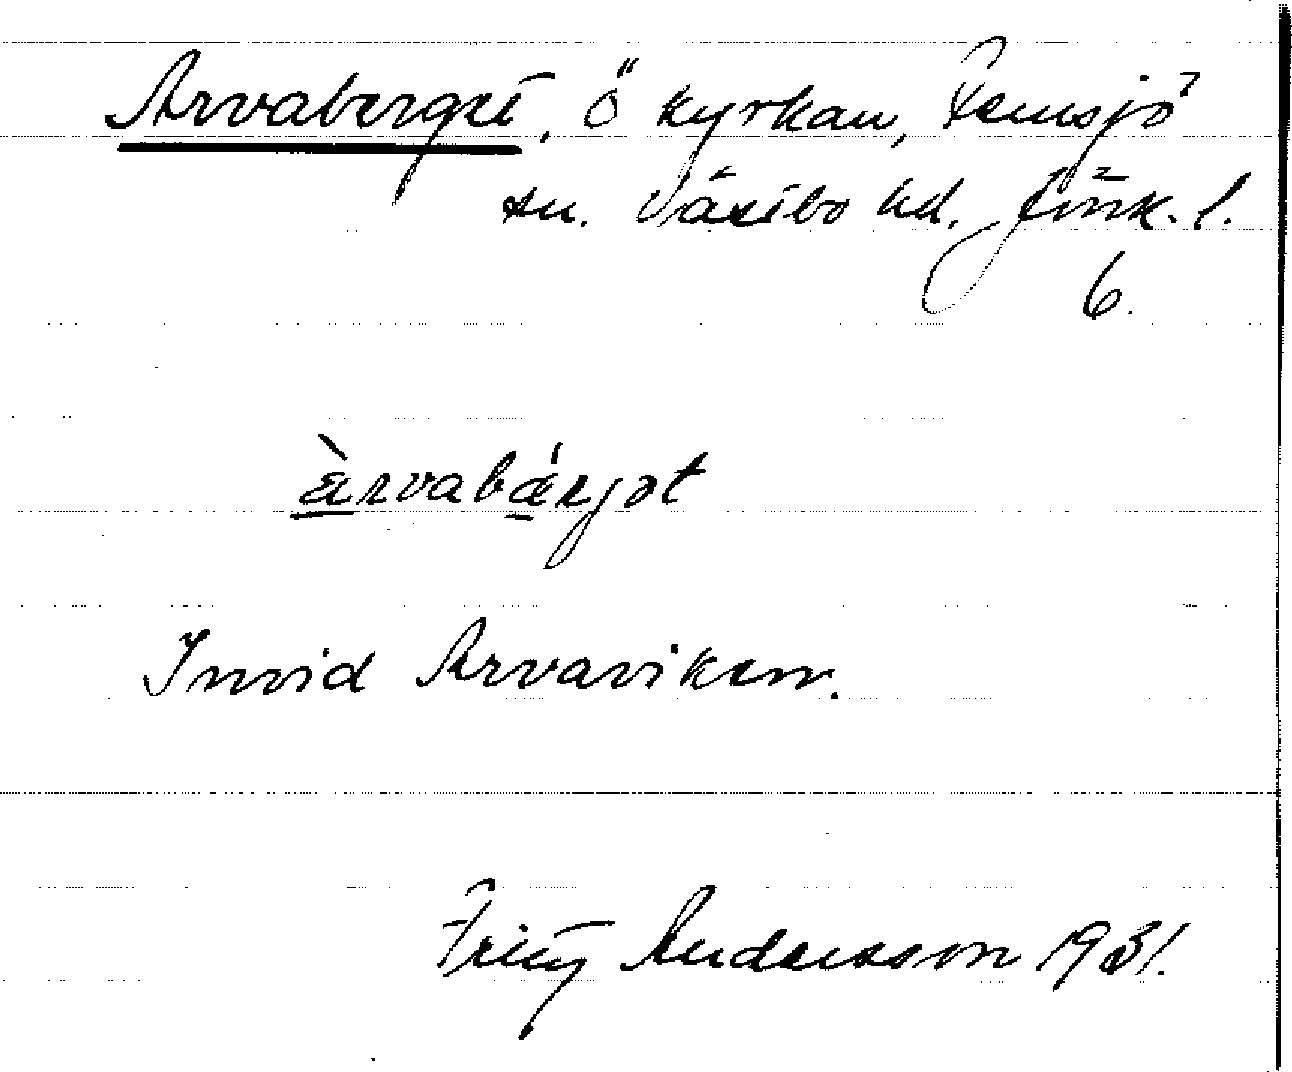 Arvaberget, Ö kyrkan, Femsjö
sn. Västbo hd. Jönk. l.
6.
àrvabǽrjət
Invid Arvaviken.
Fritz Andersson 1931.